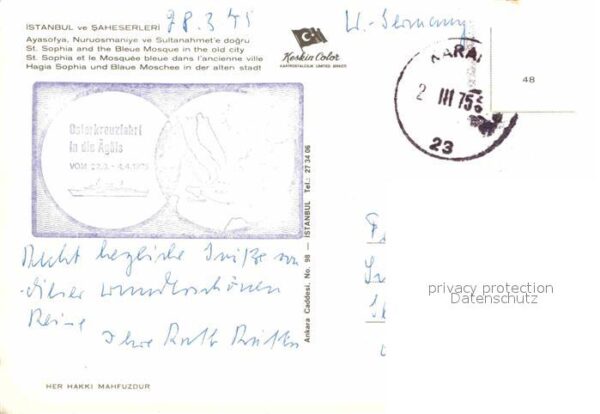 İSTANBUL ve ŞAHESERLERİ
Ayasofya, Nuruosmaniye ve Sultanahmet'e doğru
St. Sophia and the Bleue Mosque in the old city
St. Sophia et le Mosquée bleue dans l'ancienne ville
Hagia Sophia und Blaue Moschee in der alten stadt
28.3.75
W.-Germany
Keskin Color
KARA
2 III 75
23
48
Osterkreuzfahrt
in die Ägäis
VOM - 4.4.1975
Ankara Caddesi, No. 98 — İSTANBUL Tel.: 27 34 06
Recht herzliche Grüße von
dieser wunderschönen
Reise
Ihre Ruth
privacy protection
Datenschutz
HER HAKKI MAHFUZDUR